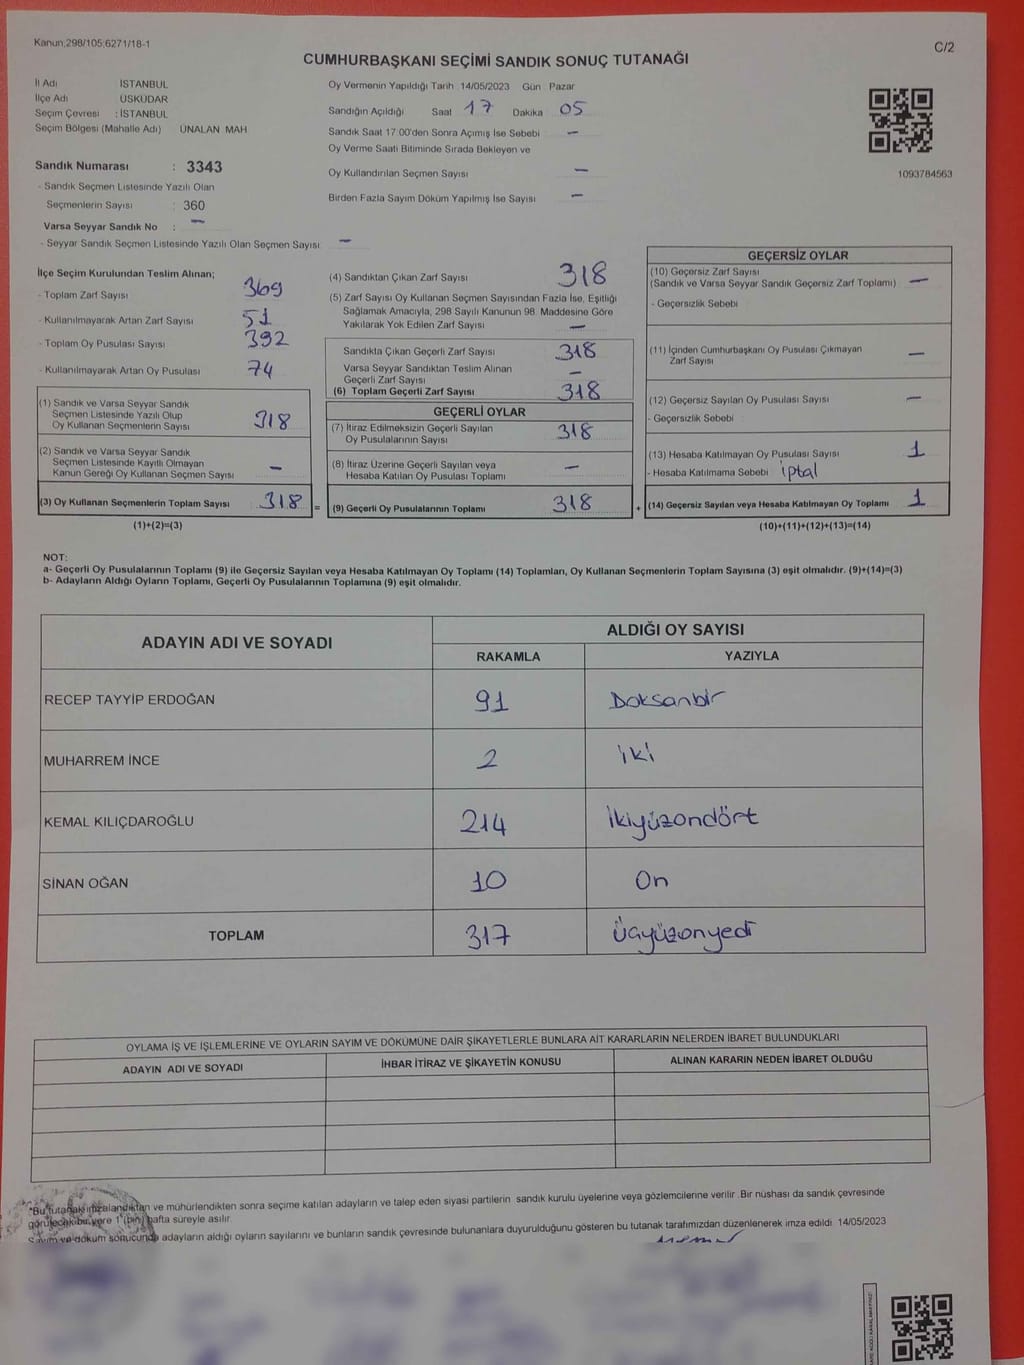 Kanun;298/105;6271/18-1
C/2
CUMHURBAŞKANI SEÇİMİ SANDIK SONUÇ TUTANAĞI
İl Adı İSTANBUL
İlçe Adı ÜSKÜDAR
Seçim Çevresi : İSTANBUL
Seçim Bölgesi (Mahalle Adı) ÜNALAN MAH.
Sandık Numarası : 3343
- Sandık Seçmen Listesinde Yazılı Olan
Seçmenlerin Sayısı : 360
Varsa Seyyar Sandık No : –
- Seyyar Sandık Seçmen Listesinde Yazılı Olan Seçmen Sayısı: –
Oy Vermenin Yapıldığı Tarih : 14/05/2023 Gün : Pazar
Sandığın Açıldığı Saat 17 Dakika 05
Sandık Saat 17 00'den Sonra Açımış İse Sebebi –
Oy Verme Saati Bitiminde Sırada Bekleyen ve
Oy Kullandırılan Seçmen Sayısı –
Birden Fazla Sayım Döküm Yapılmış İse Sayısı –
1093784563
İlçe Seçim Kurulundan Teslim Alınan;
- Toplam Zarf Sayısı 369
- Kullanılmayarak Artan Zarf Sayısı 51
- Toplam Oy Pusulası Sayısı 392
- Kullanılmayarak Artan Oy Pusulası 74
(1) Sandık ve Varsa Seyyar Sandık
Seçmen Listesinde Yazılı Olup
Oy Kullanan Seçmenlerin Sayısı 318
(2) Sandık ve Varsa Seyyar Sandık
Seçmen Listesinde Kayıtlı Olmayan
Kanun Gereği Oy Kullanan Seçmen Sayısı –
(3) Oy Kullanan Seçmenlerin Toplam Sayısı 318 =
(1)+(2)=(3)
(4) Sandıktan Çıkan Zarf Sayısı 318
(5) Zarf Sayısı Oy Kullanan Seçmen Sayısından Fazla İse, Eşitliği
Sağlamak Amacıyla, 298 Sayılı Kanunun 98. Maddesine Göre
Yakılarak Yok Edilen Zarf Sayısı –
Sandıkta Çıkan Geçerli Zarf Sayısı 318
Varsa Seyyar Sandıktan Teslim Alınan
Geçerli Zarf Sayısı –
(6) Toplam Geçerli Zarf Sayısı 318
GEÇERLİ OYLAR
(7) İtiraz Edilmeksizin Geçerli Sayılan
Oy Pusulalarının Sayısı 318
(8) İtiraz Üzerine Geçerli Sayılan veya
Hesaba Katılan Oy Pusulası Toplamı –
(9) Geçerli Oy Pusulalarının Toplamı 318 +
GEÇERSİZ OYLAR
(10) Geçersiz Zarf Sayısı
(Sandık ve Varsa Seyyar Sandık Geçersiz Zarf Toplamı) –
- Geçersizlik Sebebi
(11) İçinden Cumhurbaşkanı Oy Pusulası Çıkmayan
Zarf Sayısı –
(12) Geçersiz Sayılan Oy Pusulası Sayısı –
- Geçersizlik Sebebi
(13) Hesaba Katılmayan Oy Pusulası Sayısı 1
- Hesaba Katılmama Sebebi iptal
(14) Geçersiz Sayılan veya Hesaba Katılmayan Oy Toplamı 1
(10)+(11)+(12)+(13)=(14)
NOT:
a- Geçerli Oy Pusulalarının Toplamı (9) ile Geçersiz Sayılan veya Hesaba Katılmayan Oy Toplamı (14) Toplamları, Oy Kullanan Seçmenlerin Toplam Sayısına (3) eşit olmalıdır. (9)+(14)=(3)
b- Adayların Aldığı Oyların Toplamı, Geçerli Oy Pusulalarının Toplamına (9) eşit olmalıdır.
ADAYIN ADI VE SOYADI ALDIĞI OY SAYISI
RAKAMLA YAZIYLA
RECEP TAYYİP ERDOĞAN 91 Doksanbir
MUHARREM İNCE 2 iki
KEMAL KILIÇDAROĞLU 214 İkiyüzondört
SİNAN OĞAN 10 On
TOPLAM 317 Üçyüzonyedi
OYLAMA İŞ VE İŞLEMLERİNE VE OYLARIN SAYIM VE DÖKÜMÜNE DAİR ŞİKAYETLERLE BUNLARA AİT KARARLARIN NELERDEN İBARET BULUNDUKLARI
ADAYIN ADI VE SOYADI İHBAR İTİRAZ VE ŞİKAYETİN KONUSU ALINAN KARARIN NEDEN İBARET OLDUĞU
*Bu tutanak imzalandıktan ve mühürlendikten sonra seçime katılan adayların ve talep eden siyasi partilerin sandık kurulu üyelerine veya gözlemcilerine verilir. Bir nüshası da sandık çevresinde
görülecek bir yere 1 (bir) hafta süreyle asılır.
Sayım ve döküm sonucunda adayların aldığı oyların sayılarını ve bunların sandık çevresinde bulunanlara duyurulduğunu gösteren bu tutanak tarafımızdan düzenlenerek imza edildi. 14/05/2023